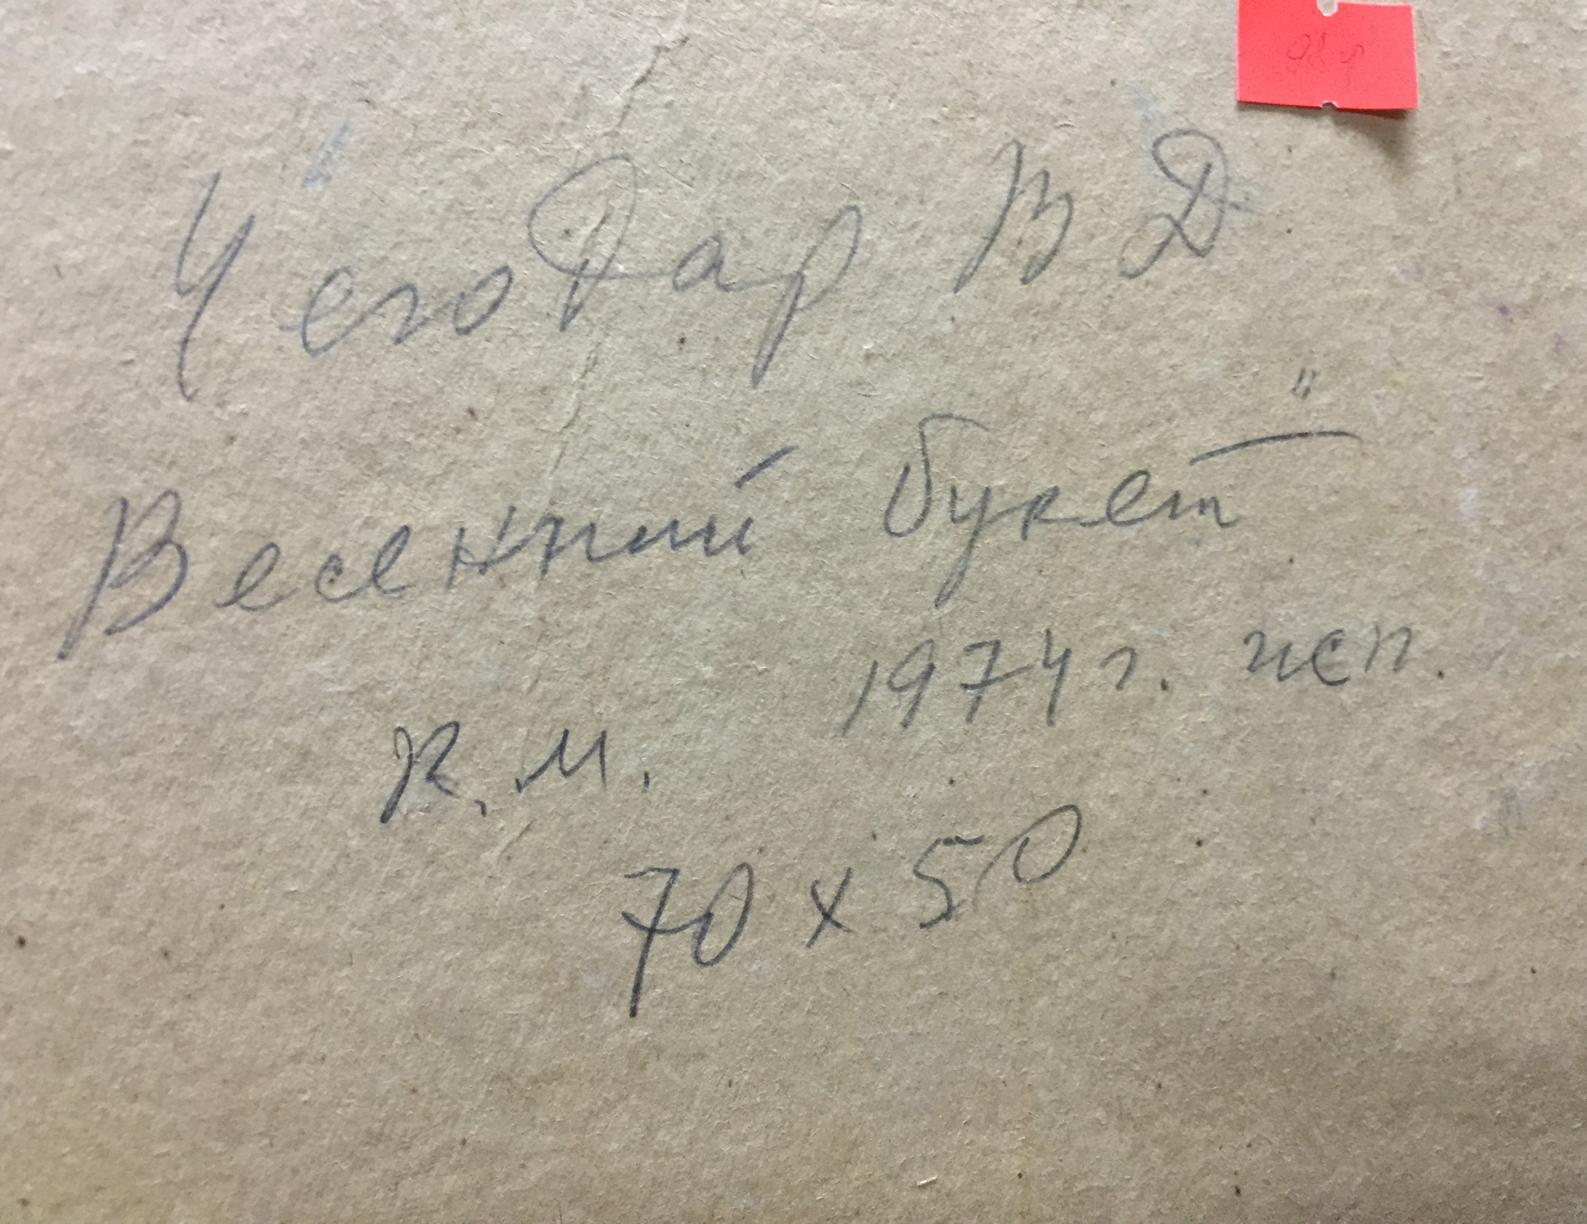 Чегодар В Д
Весенний букет"
1974 г. исп.
к.м.
70 х 50